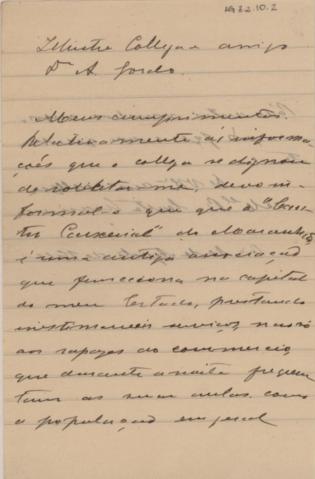 1932.10.2
Illustre Collega e amigo
Dr A. Gordo.
Meus cumprimentos
Relativamente ás informa-
ções que o collega se dignou
de solicitar-me, devo in-
formal-o que que o "Cen-
tro Caixeiral" do Maranhão
é uma antiga associação
que funcciona na capital
do meu Estado, prestando
inestimaveis serviços não só
aos rapazes do commercio,
que durante a noite frequen-
tam as suas aulas, como
a população em geral